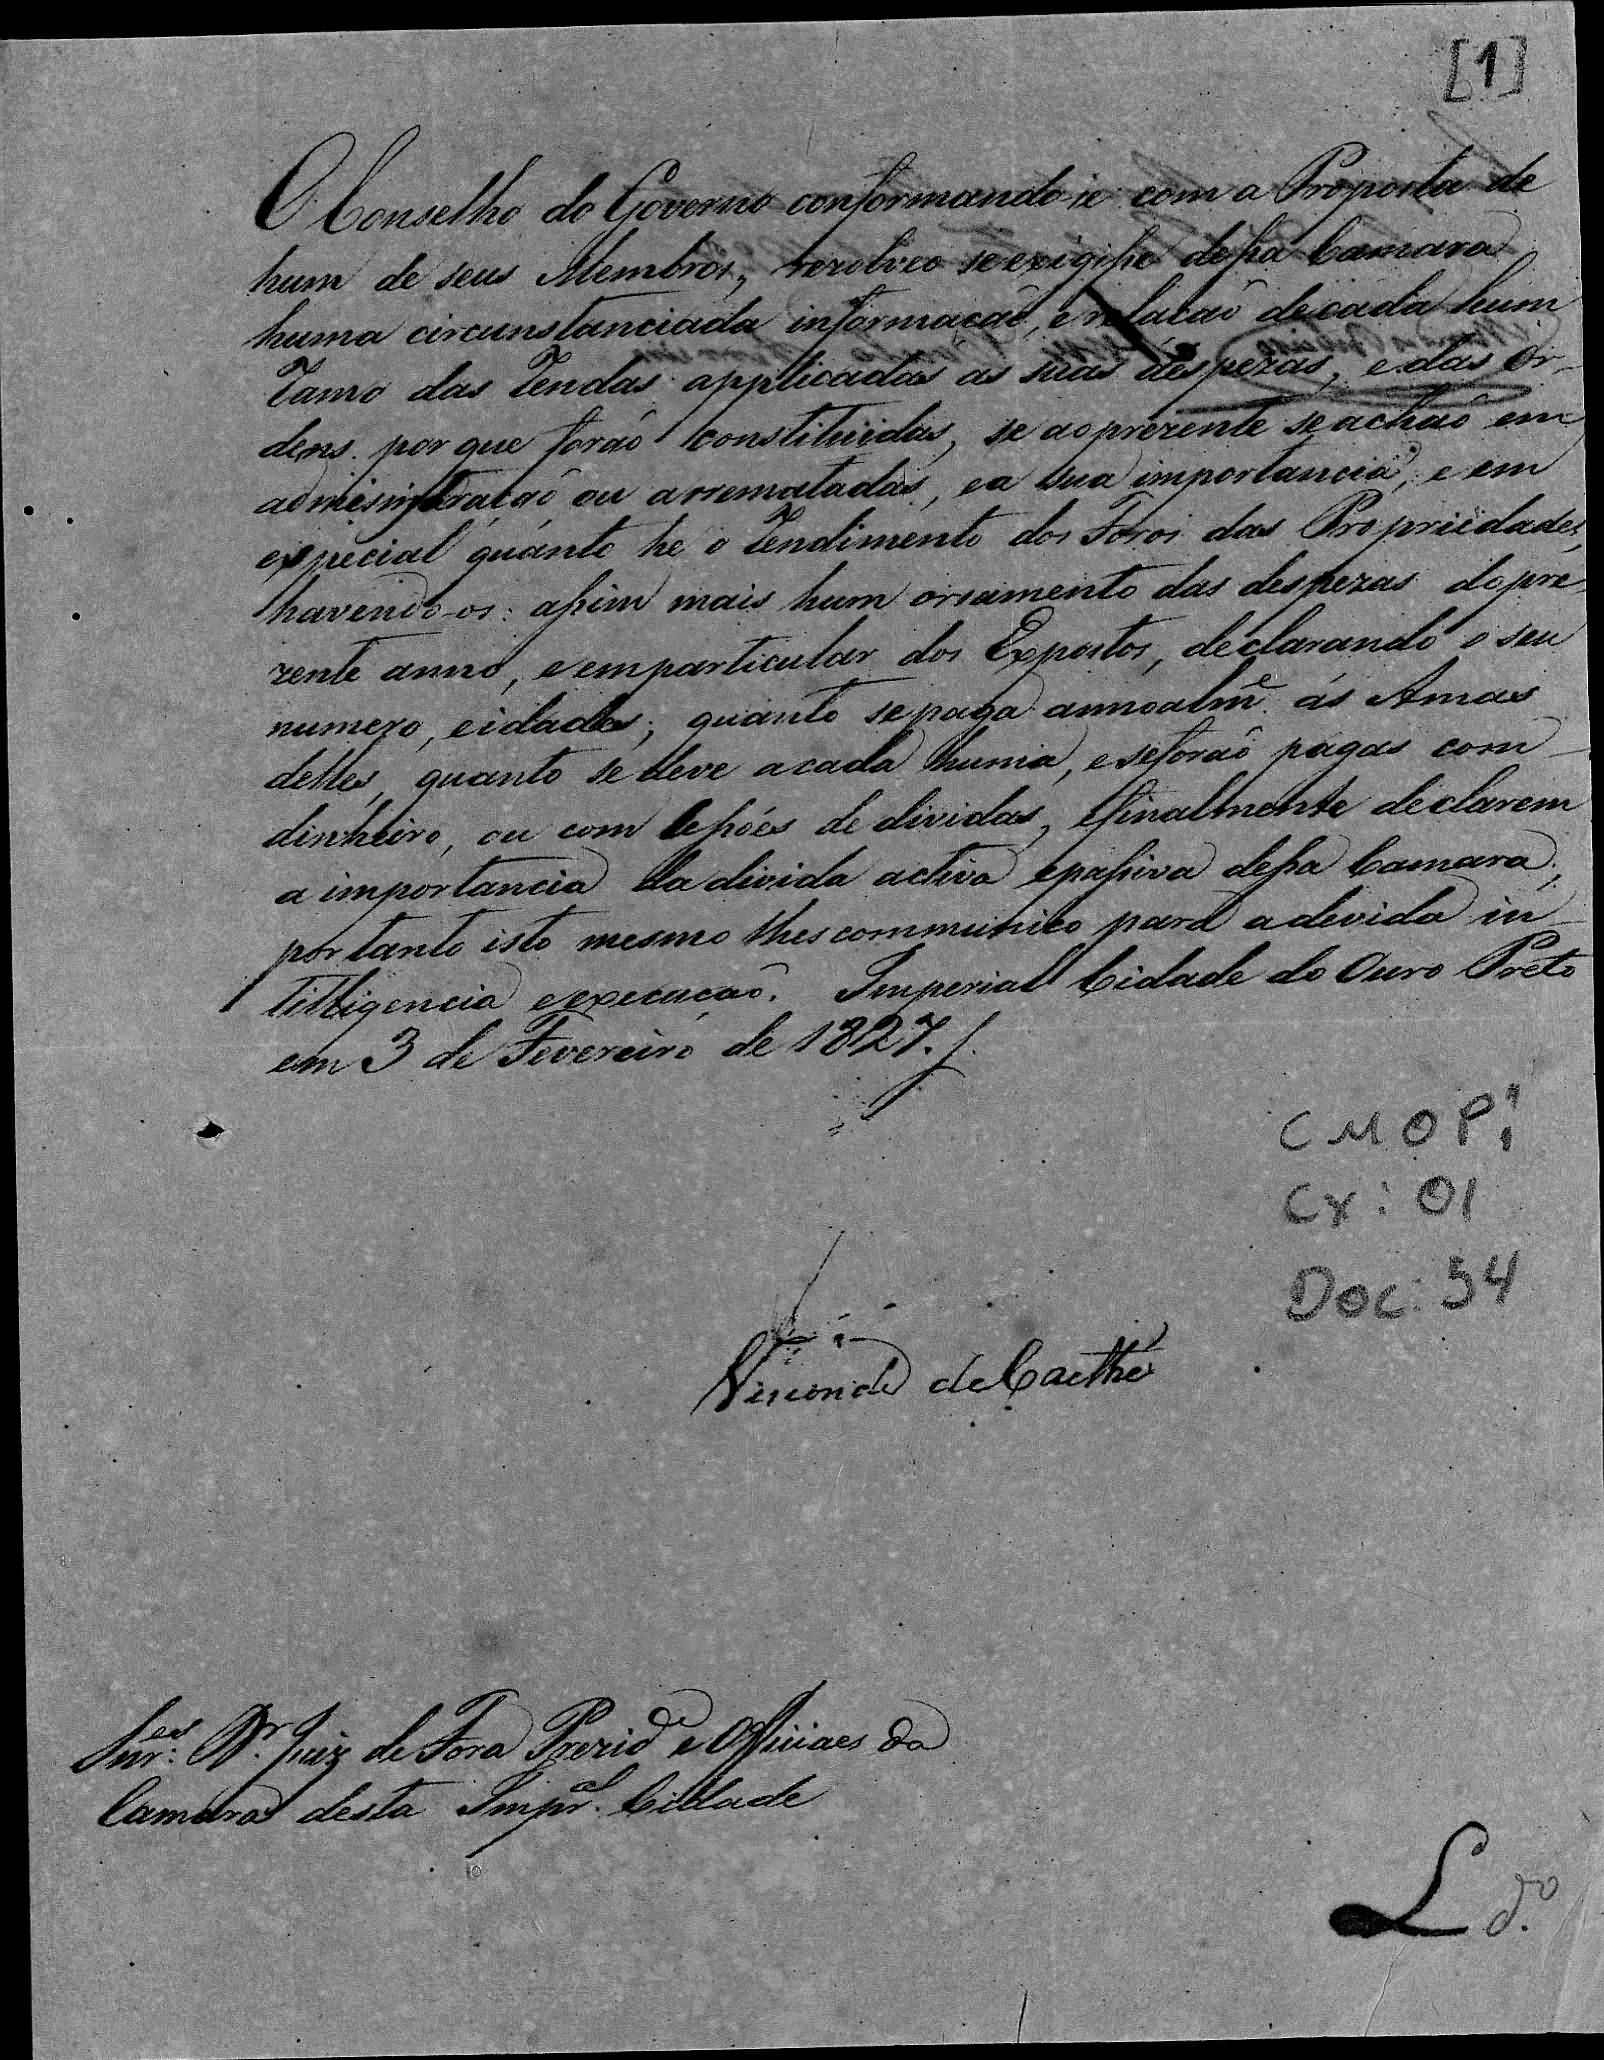 [1]
O Conselho do Governo conformando-se com a Proposta de
hum de seus Membros, rezolveo se exigisse dessa Camara
huma circunstanciada informação, e relação de cada hum
ramo das rendas applicadas as suas despezas, e das Or-
dens por que forão constituidas, se ao prezente se achaõ em
administração ou arrematadas, e a sua importancia, e em
especial quanto he o rendimento dos Foros das Propriedades,
havendo-os: assim mais hum orsamento das despezas do pre-
zente anno, e em particular dos Expostos, declarando o seu
numero, e idades; quanto se paga annoalm.e ás Amas
delles, quanto se deve a cada huma, e se forão pagas com
dinheiro, ou com sessões de dividas, e finalmente declarem
a importancia da divida activa e passiva dessa Camara;
por tanto isto mesmo lhes communico para a devida in-
telligencia e execução. Imperial Cidade do Ouro Preto
em 3 de Fevereiro de 1827.
CMOP:
Cx: 01
Doc: 54
Visconde de Caethé
Snr.es D.r Juiz de Fora Prezid.e e Officiaes da
Camara desta Imp.al Cidade
L d.o